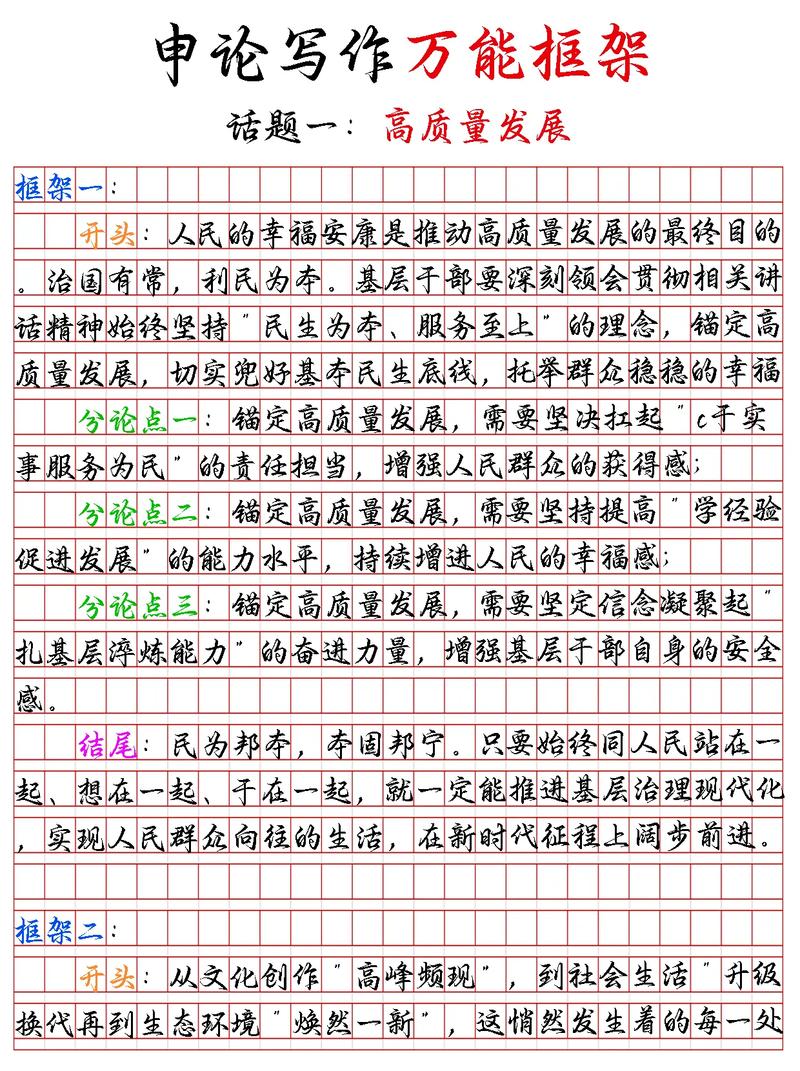 申论写作万能框架
话题一：高质量发展
框架一：
开头：人民的幸福安康是推动高质量发展的最终目的
。治国有常，利民为本。基层干部要深刻领会贯彻相关讲
话精神始终坚持"民生为本、服务至上"的理念，锚定高
质量发展，切实兜好基本民生底线，托举群众稳稳的幸福
分论点一：锚定高质量发展，需要坚决扛起"c干实
事服务为民"的责任担当，增强人民群众的获得感；
分论点二：锚定高质量发展，需要坚持提高"学经验
促进发展"的能力水平，持续增进人民的幸福感；
分论点三：锚定高质量发展，需要坚定信念凝聚起"
扎基层淬炼能力"的奋进力量，增强基层干部自身的安全
感。
结尾：民为邦本，本固邦宁。只要始终同人民站在一
起、想在一起、干在一起，就一定能推进基层治理现代化
，实现人民群众向往的生活，在新时代征程上阔步前进。
框架二：
开头：从文化创作"高峰频现"，到社会生活"升级
换代再到生态环境"焕然一新"，这悄然发生着的每一处